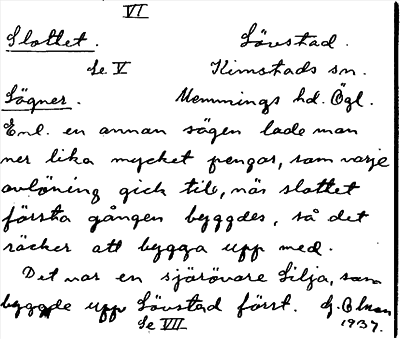 VI
Slottet. Lövstad.
Se V Kimstads sn.
Sägner. Memmings hd. Ögl.
Enl. en annan sägen lade man
ner lika mycket pengar, som varje
avlöning gick till, när slottet
första gången byggdes, så det
räcker att bygga upp med.
Det var en sjörövare Lilja, som
byggde upp Lövstad först. G.
Se VII 1937.